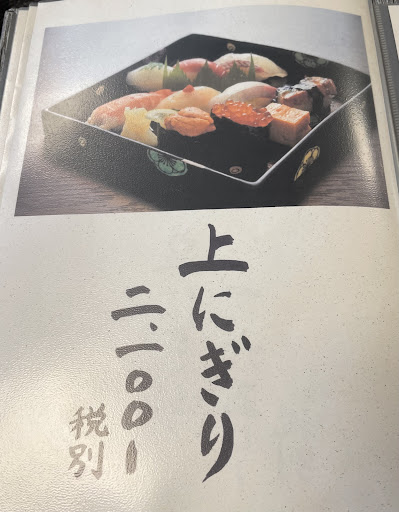 上にぎり
二、一〇〇ー
税別